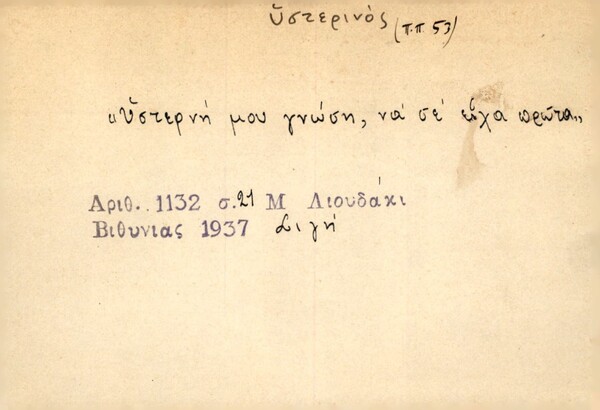 ὕστερινός (π.π 53)
«Ὕστερνή μου γνώση, νά σέ εἶχα πρῶτα»
Αριθ. 1132 σ. 21 Μ Λιουδάκι
Βιθυνιας 1937 Σιγή